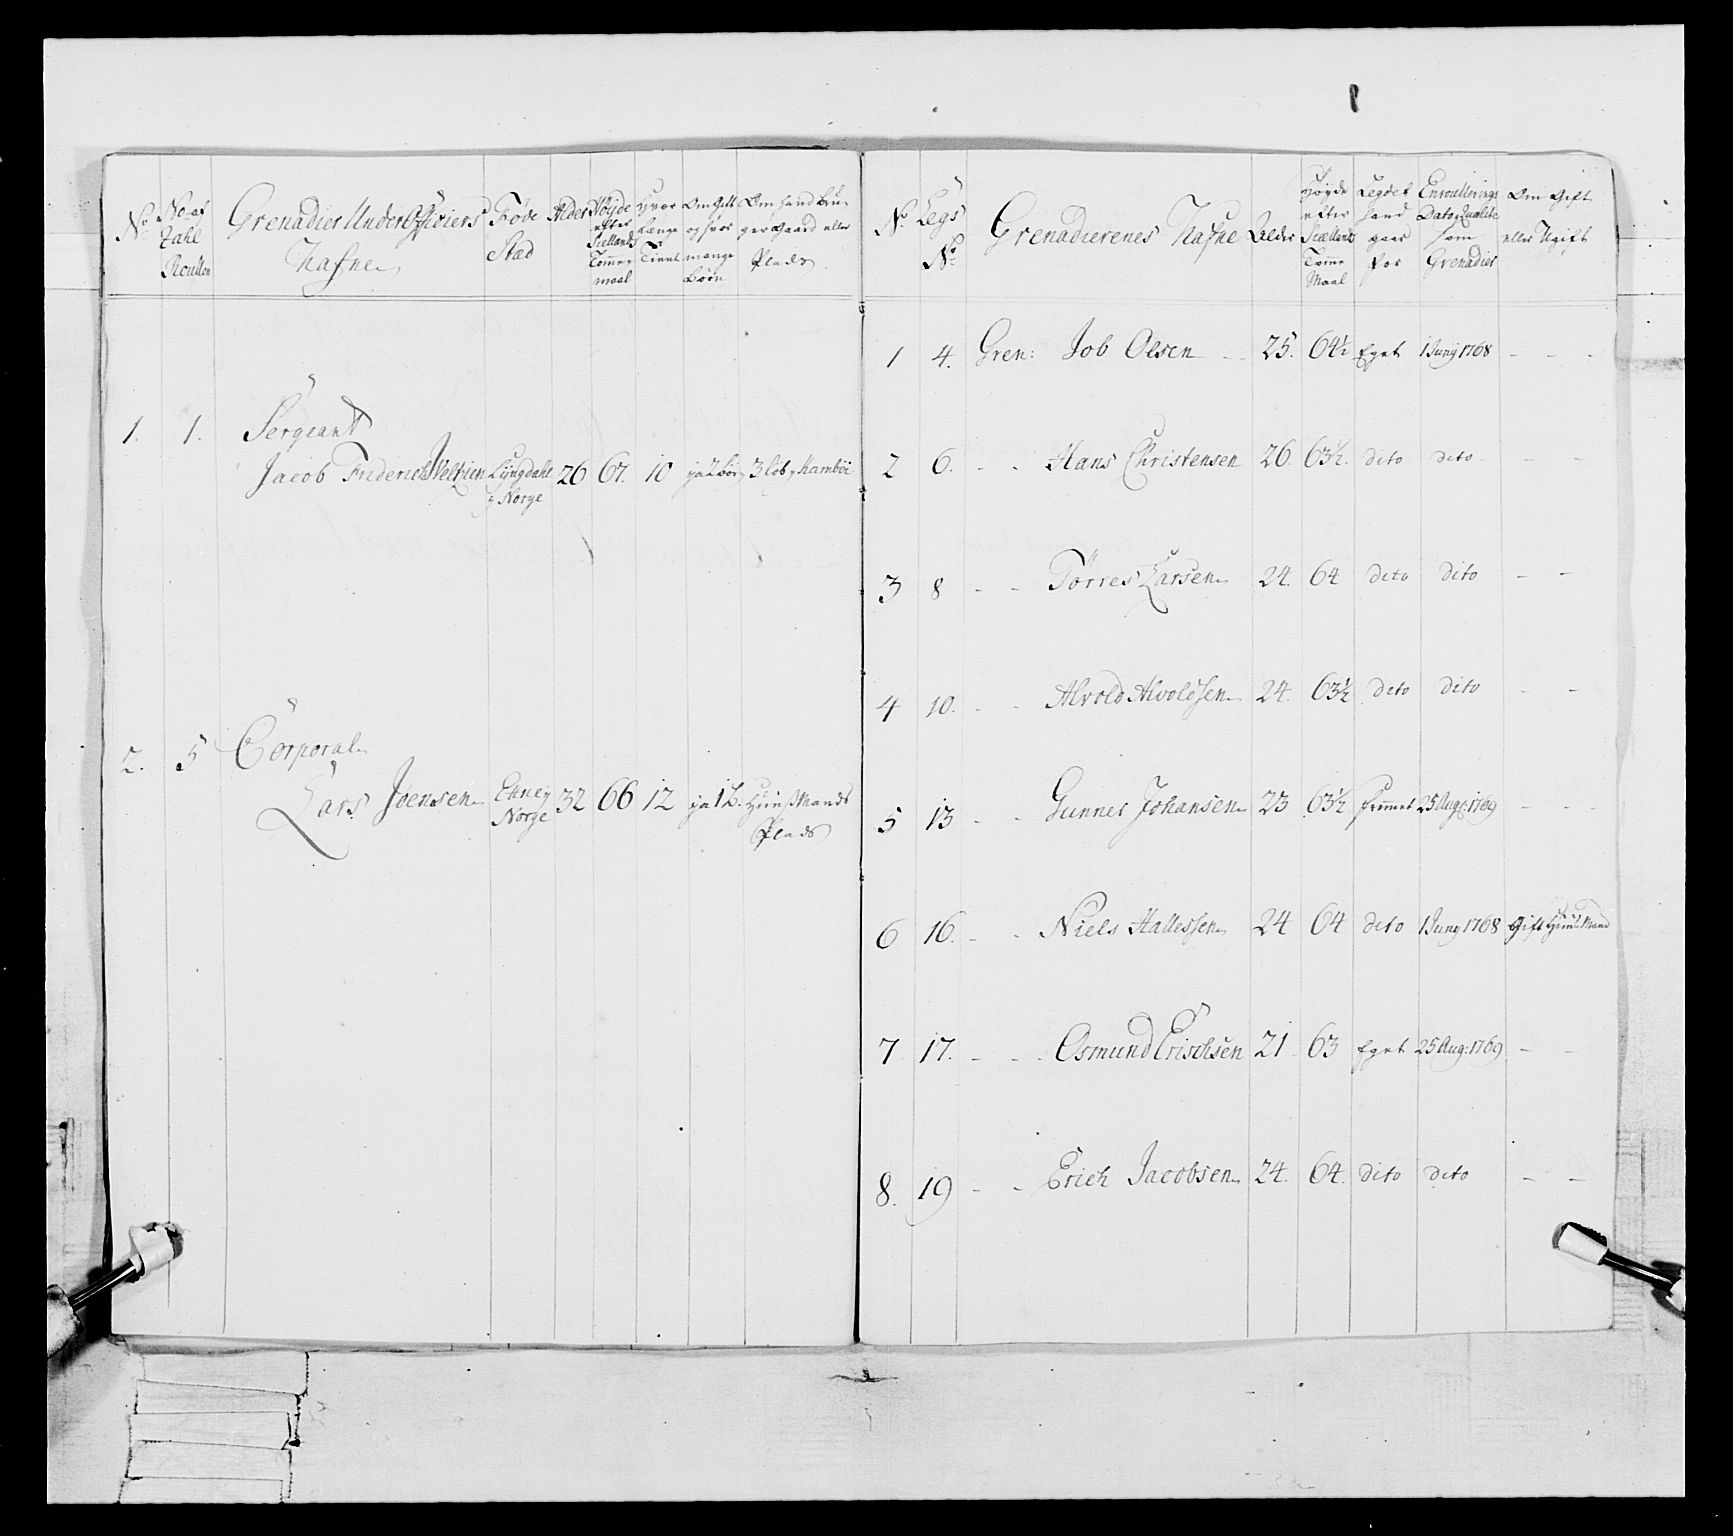 No
No af Zahl Roullen
Grenadier Under Officiers Nafne
Føde Stæd
Alder
Høyde efter Siellands Tomme maal
Hvor længe Tient
Om Gift og hvor mange Børn
Om hand bruger Gaard eller Plads
1. 1. Sergeant
Jacob Friderich Lyngdahl 26 67. 10 3
y Norge
2. 5 Corporal
Lars Joensen 32 66 12 ja 1 b. Huusmands
Norge Plads
No
Legs No
Grenadierenes Nafne
Alder
Høyde efter Siællands Tomme Maal
Legdet hand gaar for
Enroullerings Dato qualite som Grenadier
Om Gift eller Ugift
1 4. Gren: Job Olsen - - 25. 64½ Eget 1 Junij 1768 - - -
2 6. - - Hans Christensen 26. 63½. dito dito - - -
3 8 - - Törres Larsen 24. 64 dito dito - -
4 10. - - Alvold Alvoldsen 24. 63½ dito dito - -
5 13 - - Gunner Johansen 23 63½ fremmet 25 Aug: 1769 - - -
6 16. - - Niels Hallessen 24 64 dito 1 Juny 1768 Gift Huusmand
7 17. - - Osmund Erichsen 21 63 Eget 25 Aug: 1769 - -
8. 19 - - Erich Jacobsen 24. 64. dito dito - -